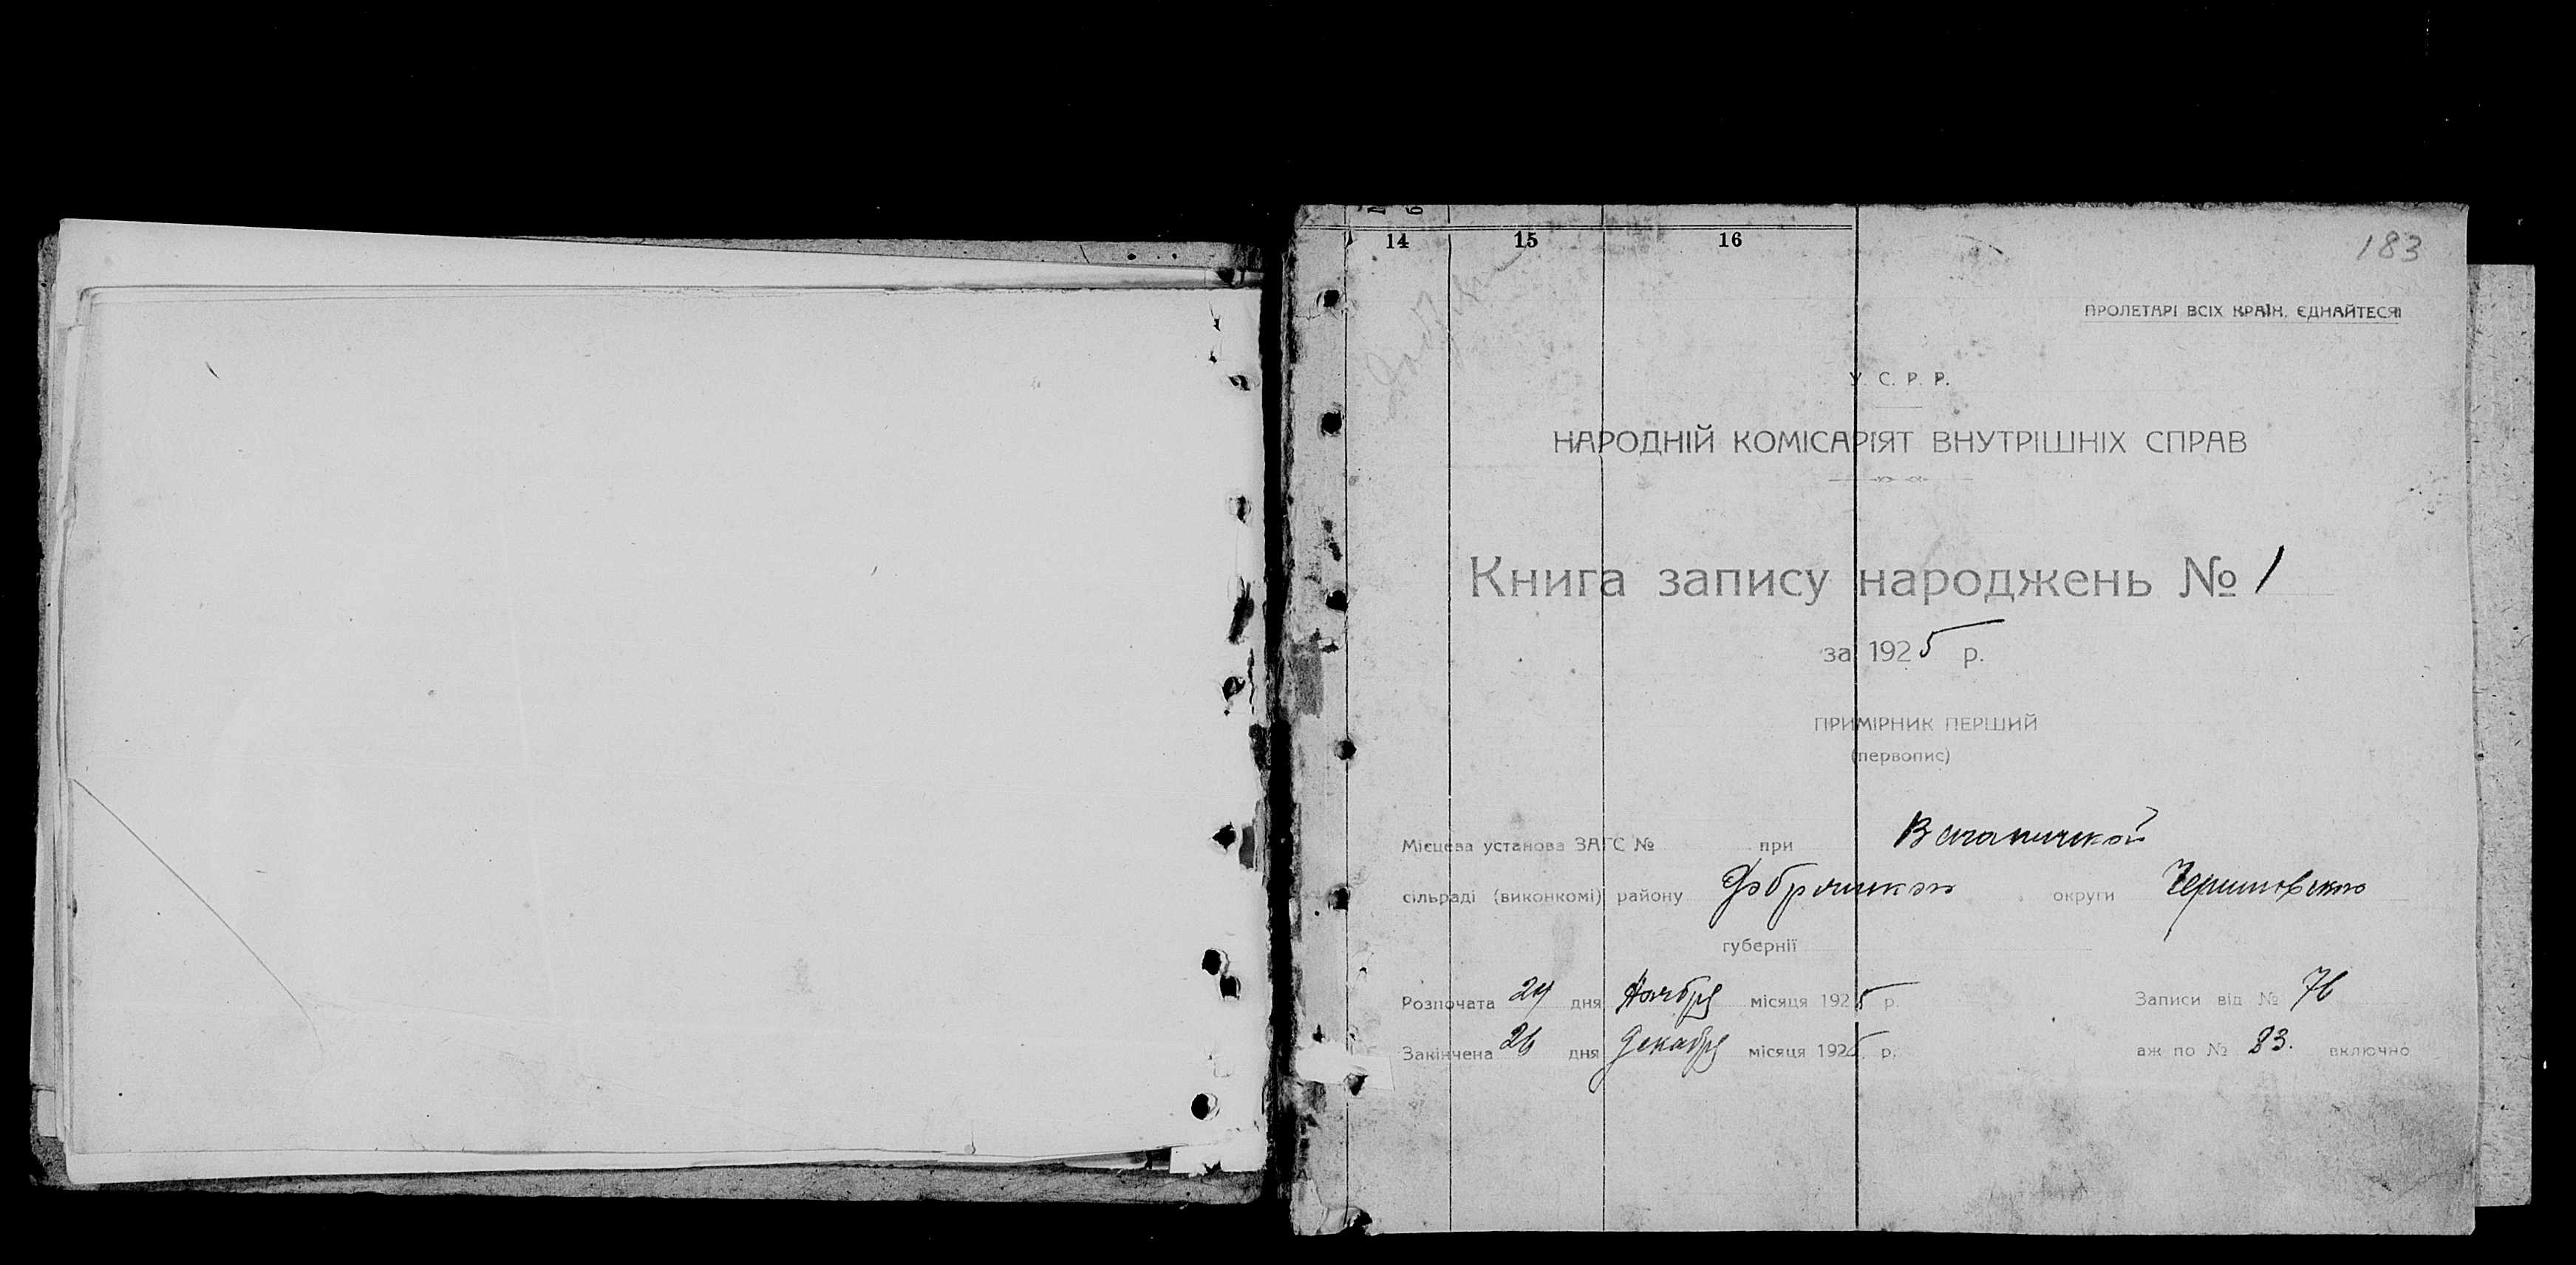 14 15 16
183
ПРОЛЕТАРІ ВСІХ КРАЇН, ЄДНАЙТЕСЯ!
У. С. Р. Р.
НАРОДНІЙ КОМІСАРІЯТ ВНУТРІШНІХ СПРАВ
Книга запису народжень № 1
за 1925 р.
ПРИМІРНИК ПЕРШИЙ
(первопис)
Місцева установа ЗАГС № при
сільраді (виконкомі) району Добрянском округи Черниговского
губернії
Розпочата 24 дня Ноября місяця 1925 р. Записи від № 76
Закінчена 26 дня Декабря місяця 1925 р. аж по № 83. включно